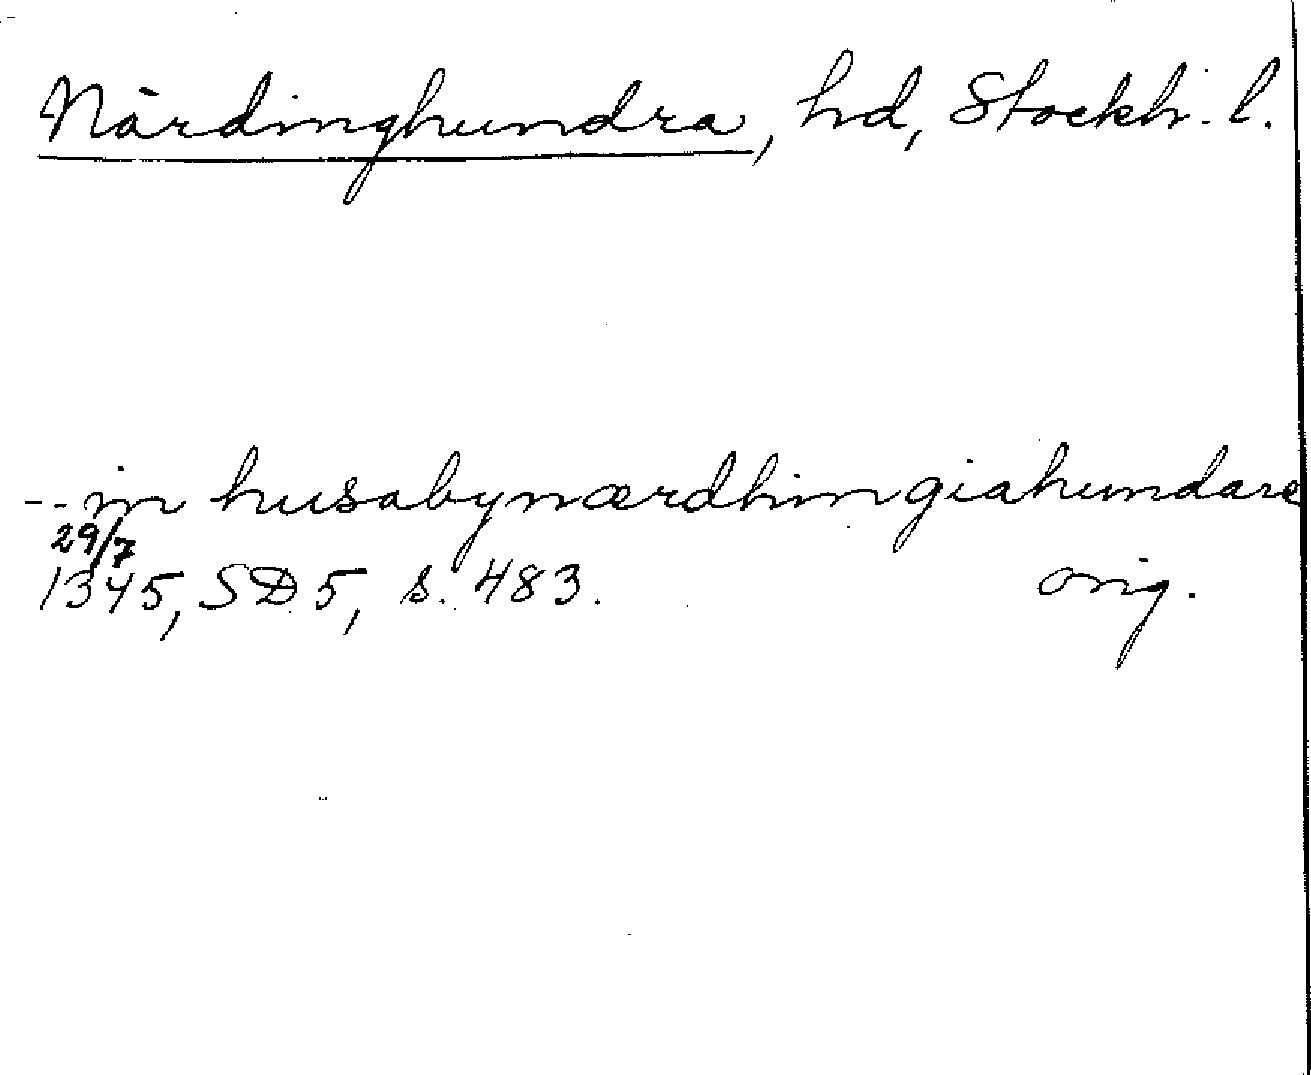 Närdinghundra, hd, Stockh. l.
-- in husabynærdhingiahundare
29/7
1345, SD 5, s. 483. orig.